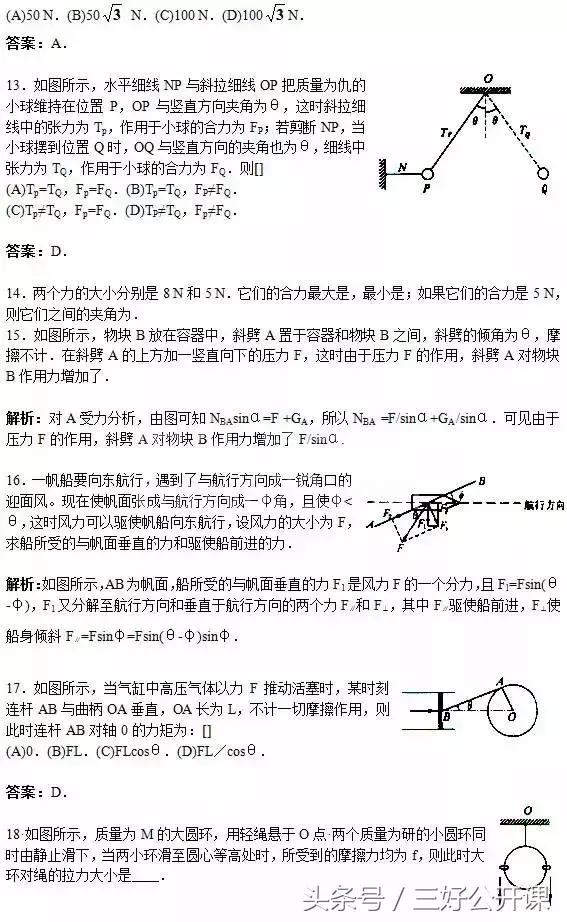 (A)50 N. (B)50√3 N. (C)100 N. (D)100√3 N.
答案：A．
13．如图所示，水平细线 NP 与斜拉细线 OP 把质量为仇的
小球维持在位置 P，OP 与竖直方向夹角为θ，这时斜拉细
线中的张力为 Tp，作用于小球的合力为 FP；若剪断 NP，当
小球摆到位置 Q 时，OQ 与竖直方向的夹角也为θ，细线中
张力为 TQ，作用于小球的合力为 FQ．则[]
(A)Tp=TQ，Fp=FQ．(B)Tp=TQ，FP≠FQ．
(C)Tp≠TQ，Fp=FQ．(D)TP≠TQ，Fp≠FQ．
O
θ
θ
TP
TQ
N
P
Q
答案：D．
14．两个力的大小分别是 8 N 和 5 N．它们的合力最大是，最小是；如果它们的合力是 5 N，
则它们之间的夹角为．
15．如图所示，物块 B 放在容器中，斜劈 A 置于容器和物块 B 之间，斜劈的倾角为θ，摩
擦不计．在斜劈 A 的上方加一竖直向下的压力 F，这时由于压力 F 的作用，斜劈 A 对物块
B 作用力增加了．
解析：对 A 受力分析，由图可知 NBAsinα=F +GA，所以 NBA =F/sinα+GA/sinα．可见由于
压力 F 的作用，斜劈 A 对物块 B 作用力增加了 F/sinα．
16．一帆船要向东航行，遇到了与航行方向成一锐角口的
迎面风。现在使帆面张成与航行方向成一φ角，且使φ<
θ，这时风力可以驱使帆船向东航行，设风力的大小为 F，
求船所受的与帆面垂直的力和驱使船前进的力．
B
φ
航行方向
A
F
解析:如图所示，AB 为帆面，船所受的与帆面垂直的力 F1 是风力 F 的一个分力，且 F1=Fsin(θ
-φ)，F1 又分解至航行方向和垂直于航行方向的两个力 F∥和 F⊥，其中 F∥驱使船前进，F⊥使
船身倾斜 F∥=Fsinφ=Fsin(θ-φ)sinφ．
17．如图所示，当气缸中高压气体以力 F 推动活塞时，某时刻
连杆 AB 与曲柄 OA 垂直，OA 长为 L，不计一切摩擦作用，则
此时连杆 AB 对轴 0 的力矩为：[]
(A)0．(B)FL．(C)FLcosθ．(D)FL／cosθ．
A
B
θ
O
答案：D．
18·如图所示，质量为 M 的大圆环，用轻绳悬于 O 点·两个质量为研的小圆环同
时由静止滑下，当两小环滑至圆心等高处时，所受到的摩擦力均为 f，则此时大
环对绳的拉力大小是____．
O
头条号／三好公开课